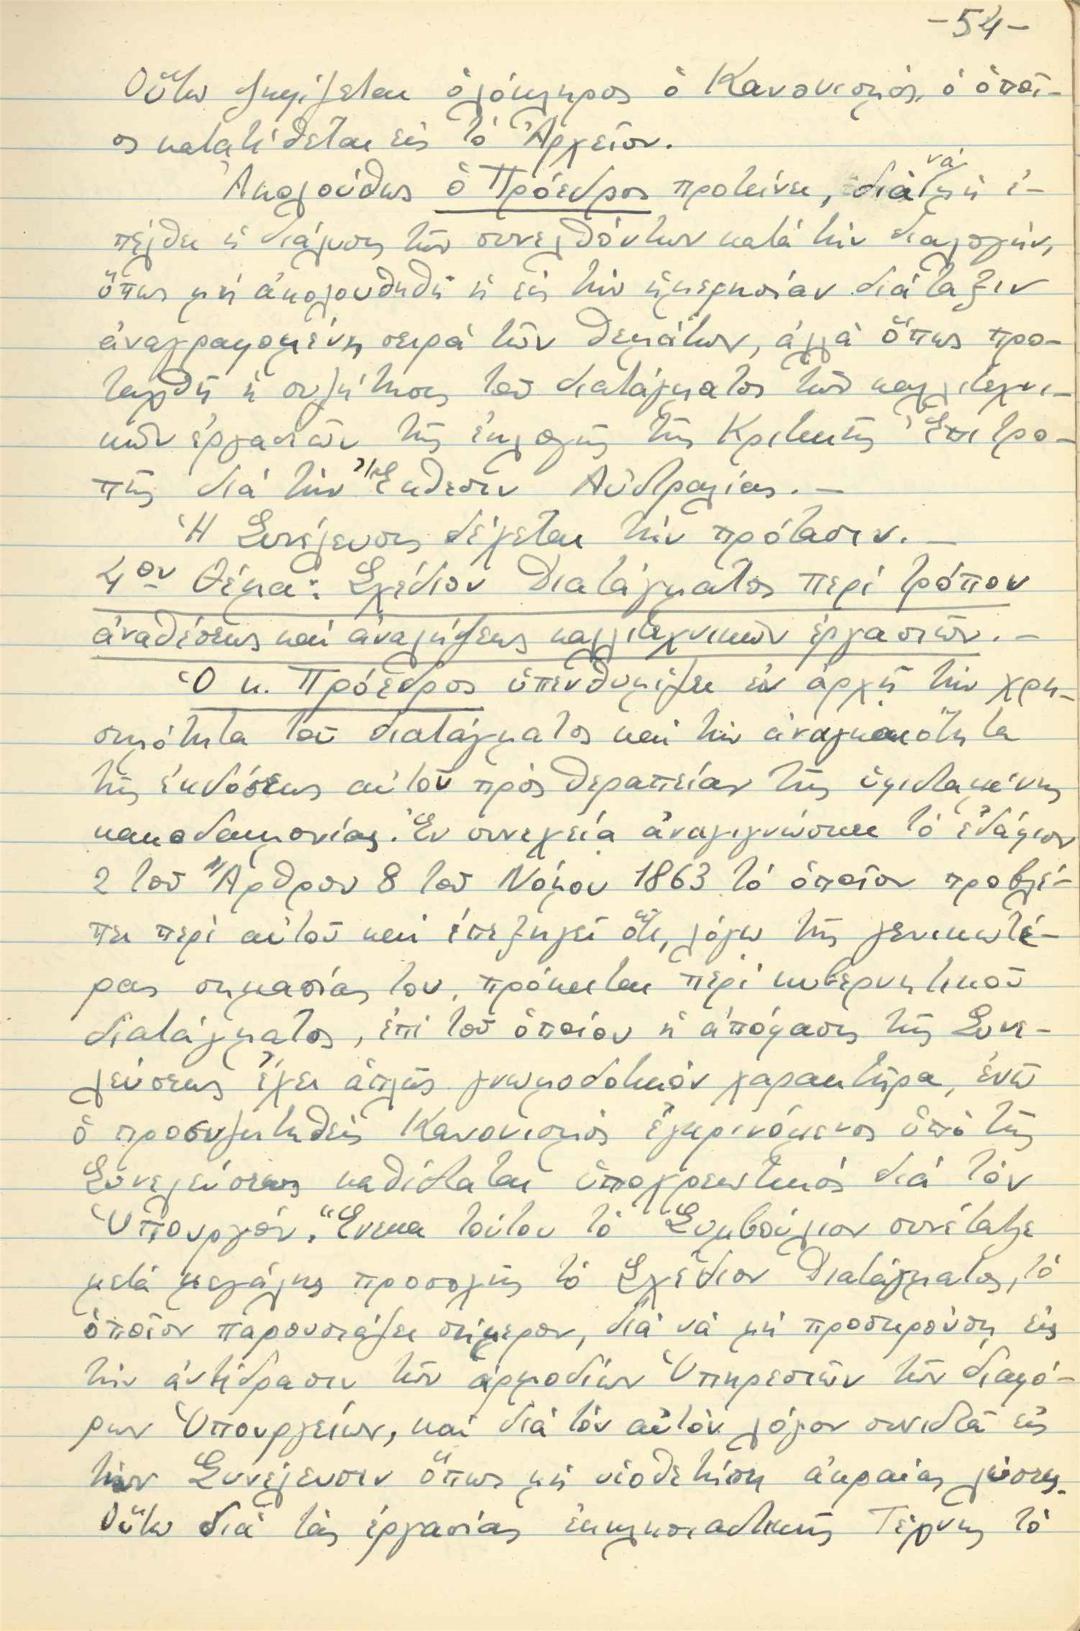 -54-
Οὕτω ψηφίζεται ὁλόκληρος ὁ Κανονισμός, ὁ ὁποῖ-
ος κατατίθεται εἰς τὸ Ἀρχεῖον.
Ἀκολούθως ὁ Πρόεδρος προτείνει, διὰ νὰ μὴ ἐ-
πέλθῃ ἡ διάλυσις τῶν συνελθόντων κατὰ τὴν διαλογήν,
ὅπως μὴ ἀκολουθηθῇ ἡ εἰς τὴν ἡμερησίαν διάταξιν
ἀναγραφομένη σειρὰ τῶν θεμάτων, ἀλλὰ ὅπως προ-
ταχθῇ ἡ συζήτησις τοῦ διατάγματος τῶν καλλιτεχνι-
κῶν ἐργασιῶν τῆς ἐκλογῆς τῆς Κριτικῆς Ἐπιτρο-
πῆς διὰ τὴν Ἔκθεσιν Αὐστραλίας.-
Ἡ Συνέλευσις δέχεται τὴν πρότασιν.-
4ον Θέμα: Σχέδιον Διατάγματος περὶ τρόπου
ἀναθέσεως καὶ ἀναλήψεως καλλιτεχνικῶν ἐργασιῶν.-
Ὁ κ. Πρόεδρος ὑπενθυμίζει ἐν ἀρχῇ τὴν χρη-
σιμότητα τοῦ διατάγματος καὶ τὴν ἀναγκαιότητα
τῆς ἐκδόσεως αὐτοῦ πρὸς θεραπείαν τῆς ὑφισταμένης
κακοδαιμονίας. Ἐν συνεχείᾳ ἀναγιγνώσκει τὸ ἐδάφιον
2 τοῦ Ἄρθρου 8 τοῦ Νόμου 1863 τὸ ὁποῖον προβλέ-
πει περὶ αὐτοῦ καὶ ἐπεξηγεῖ ὅτι, λόγω τῆς γενικωτέ-
ρας σημασίας του, πρόκειται περὶ κυβερνητικοῦ
διατάγματος, ἐπὶ τοῦ ὁποίου ἡ ἀπόφασις τῆς Συνε-
λεύσεως ἔχει ἁπλῶς γνωμοδοτικὸν χαρακτῆρα, ἐνῶ
ὁ προσυζητηθεὶς Κανονισμὸς ἐγκρινόμενος ὑπὸ τῆς
Συνελεύσεως καθίσταται ὑποχρεωτικὸς διὰ τὸν
Ὑπουργόν. Ἕνεκα τούτου τὸ Συμβούλιον συνέταξε
μετὰ μεγάλης προσοχῆς τὸ Σχέδιον Διατάγματος, τὸ
ὁποῖον παρουσιάζει σήμερον, διὰ νὰ μὴ προσκρούσῃ εἰς
τὴν ἀντίδρασιν τῶν ἁρμοδίων Ὑπηρεσιῶν τῶν διαφό-
ρων Ὑπουργείων, καὶ διὰ τὸν αὐτὸν λόγον συνιστᾶ εἰς
τὴν Συνέλευσιν ὅπως μὴ υἱοθετήσῃ ἀκραίας λύσεις.
Οὕτω διὰ τὰς ἐργασίας ἐκκλησιαστικῆς Τέχνης τὸ